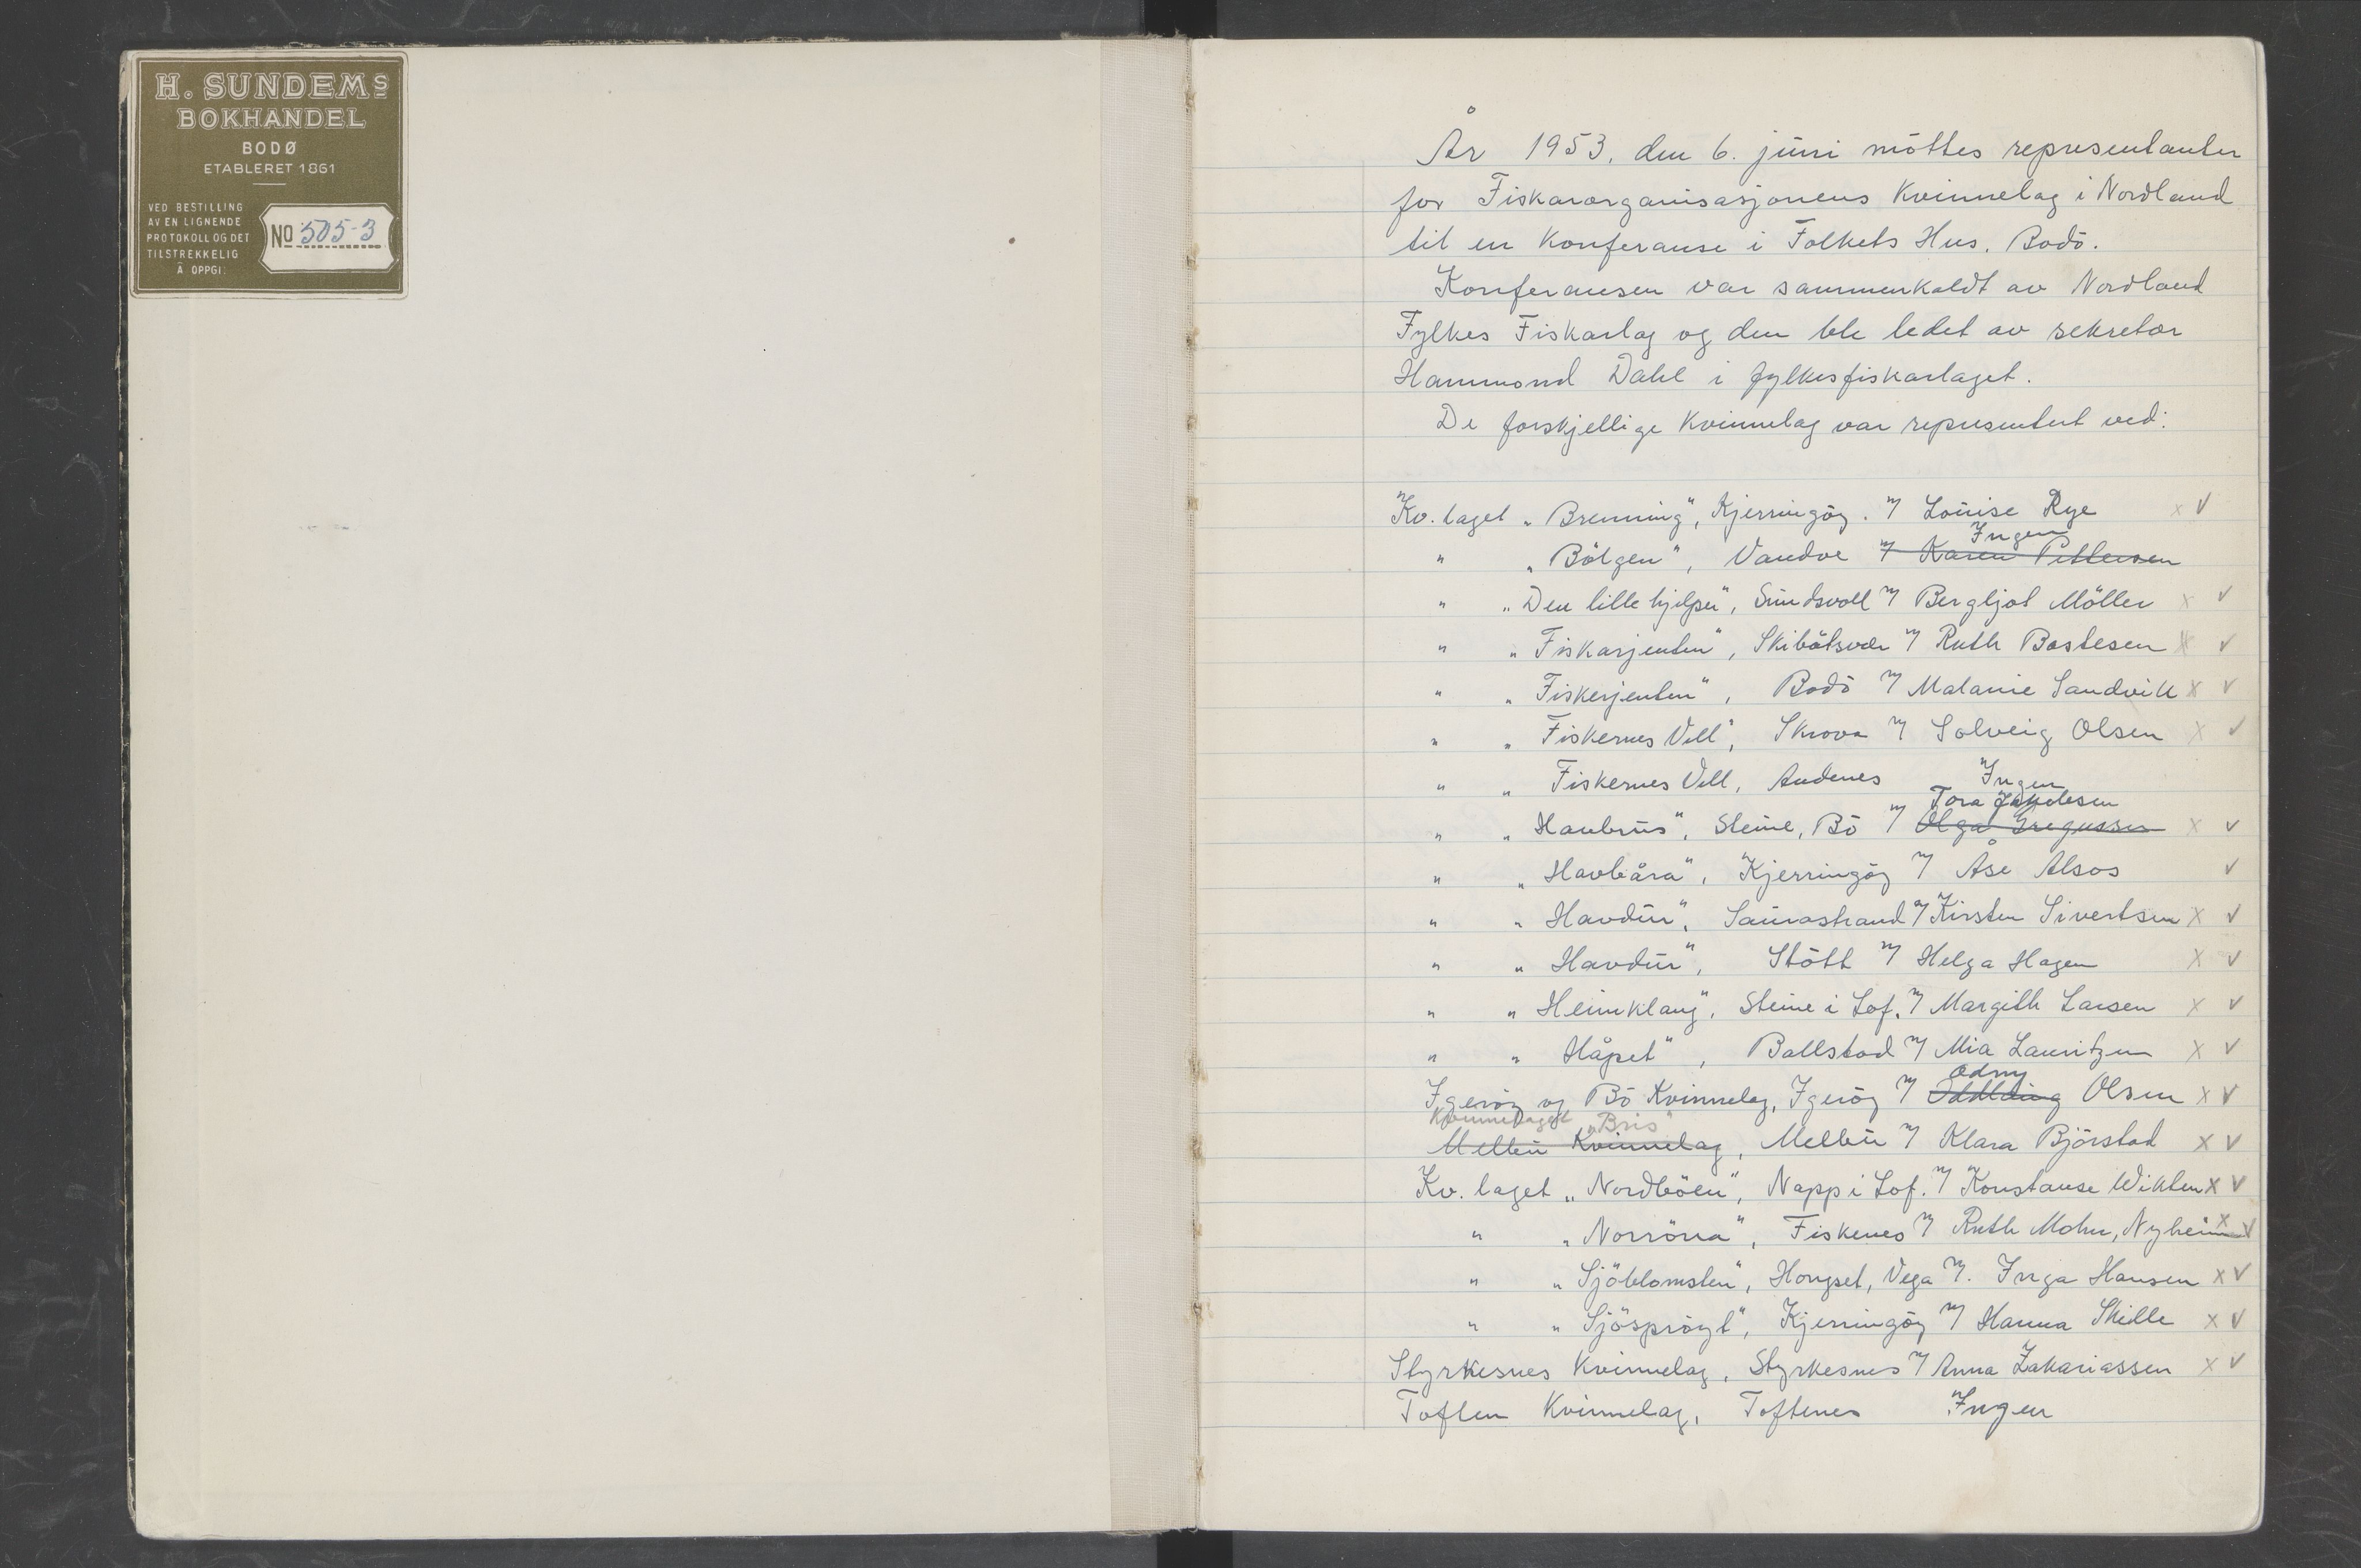 H. SUNDEMS
BOKHANDEL
BODØ
ETABLERET 1861
VED BESTILLING
AV EN LIGNENDE
PROTOKOLL OG DET
TILSTREKKELIG
Å OPPGI:
No 505-3
År 1953, den 6. juni möttes representanter
for Fiskarorganisasjonens Kvinnelag i Nordland
til en Konferanse i Folkets Hus, Bodö.
Konferansen var sammenkaldt av Nordland
Fylkes Fiskarlag og den ble ledet av sekretær
Hammond Dahl i fylkesfiskarlaget.
De forskjellige Kvinnelag var representert ved:
Kv. laget „Brenning", Kjerringöy. v/ Louise Rye x v
" „Bölgen", Vandve v/ Karen Pettersen Ingen
" „Den lille hjelper", Sundsvoll v/ Bergljot Möller x v
" „Fiskarjenten", Skibåtsvær v/ Ruth Bostesen x v
" „Fiskerjenten", Bodö v/ Malanie Sandvik x v
" „Fiskernes Vell", Skrova v/ Solveig Olsen x v
" „Fiskernes Vell, Andenes Ingen
Tora Jakobsen
" „Havbrus", Steine, Bö v/ Olga Gregussen x v
" „Havbåra", Kjerringöy v/ Åse Alsos v
" „Havdur", Saurastrand v/ Kirsten Sivertsen x v
" „Havdur", Stött v/ Helga Hagen x v
" „Heimklang", Steine i Lof. v/ Margith Larsen x v
" „Håpet", Ballstad v/ Mia Lauritzen x v
Odny
Igeröy og Bö Kvinnelag, Igeröy v/ Olsen x v
Kvinnelaget „Bris"
Melbu Kvinnelag, Melbu v/ Klara Björstad x v
Kv. laget „Nordböen", Napp i Lof. v/ Konstanse Wikten x v
" „Norröna", Fiskenes v/ Ruth Mohn, Nyheim x v
" „Sjöblomsten", Hongset, Vega v/. Inga Hansen x v
" „Sjöspröyt", Kjerringöy v/ Hanna Skille x v
Styrkesnes Kvinnelag, Styrkesnes v/ Anna Zakariassen x v
Toften Kvinnelag, Toftenes Ingen